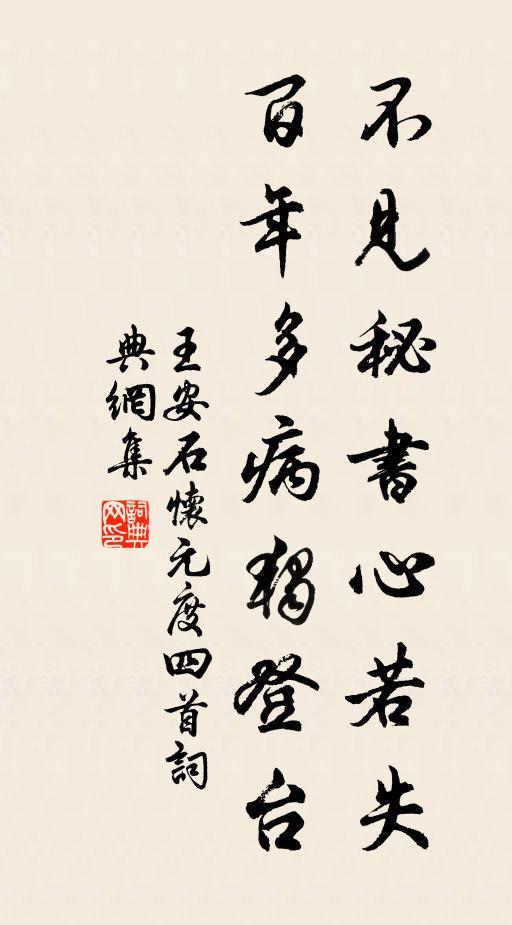 不見秘書心若失
百年多病獨登台
王安石懷元度四首詞
典網集
詞典
网印